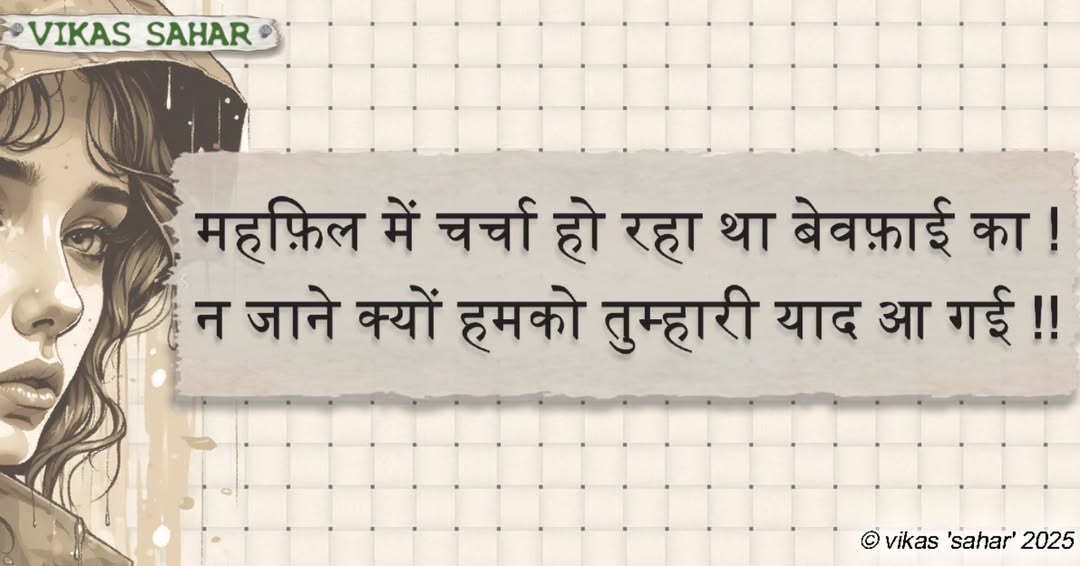 VIKAS SAHAR
महफ़िल में चर्चा हो रहा था बेवफ़ाई का !
न जाने क्यों हमको तुम्हारी याद आ गई !!
© vikas 'sahar' 2025